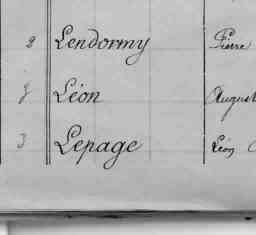 2 Lendormy Pierre
8 Léon August
3 Lepage Léon